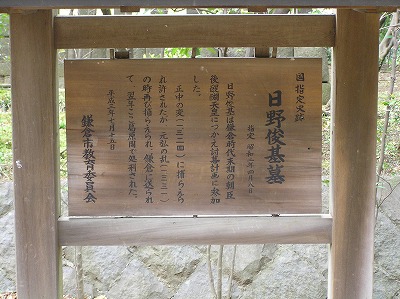 国指定史跡
日野俊基墓
指定 昭和二年四月八日
日野俊基は鎌倉時代末期の朝臣
後醍醐天皇につかえ討幕計画に参加
した。
正中の変(一三二四)に捕らえら
れ許されたが、元弘の乱(一三三一)
の時再び捕らえられ、鎌倉に送られ
て、翌年ここ葛原岡で処刑された。
平成二年十月十五日
鎌倉市教育委員会